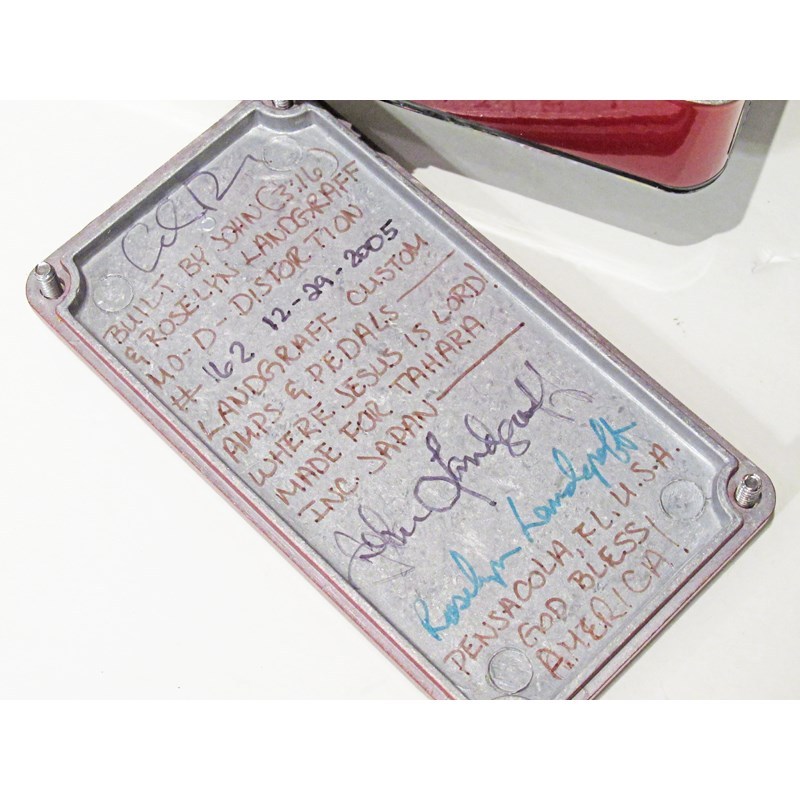 BUILT BY JOHN (3:16)
& ROSELYN LANDGRAFF
MO-D-DISTORTION
# 162 12-29-2005
LANDGRAFF CUSTOM
AMPS & PEDALS —
WHERE JESUS IS LORD!
MADE FOR TAHARA
INC. JAPAN —
John Landgraff
Roselyn Landgraff
PENSACOLA, FL. U.S.A.
GOD BLESS
AMERICA!